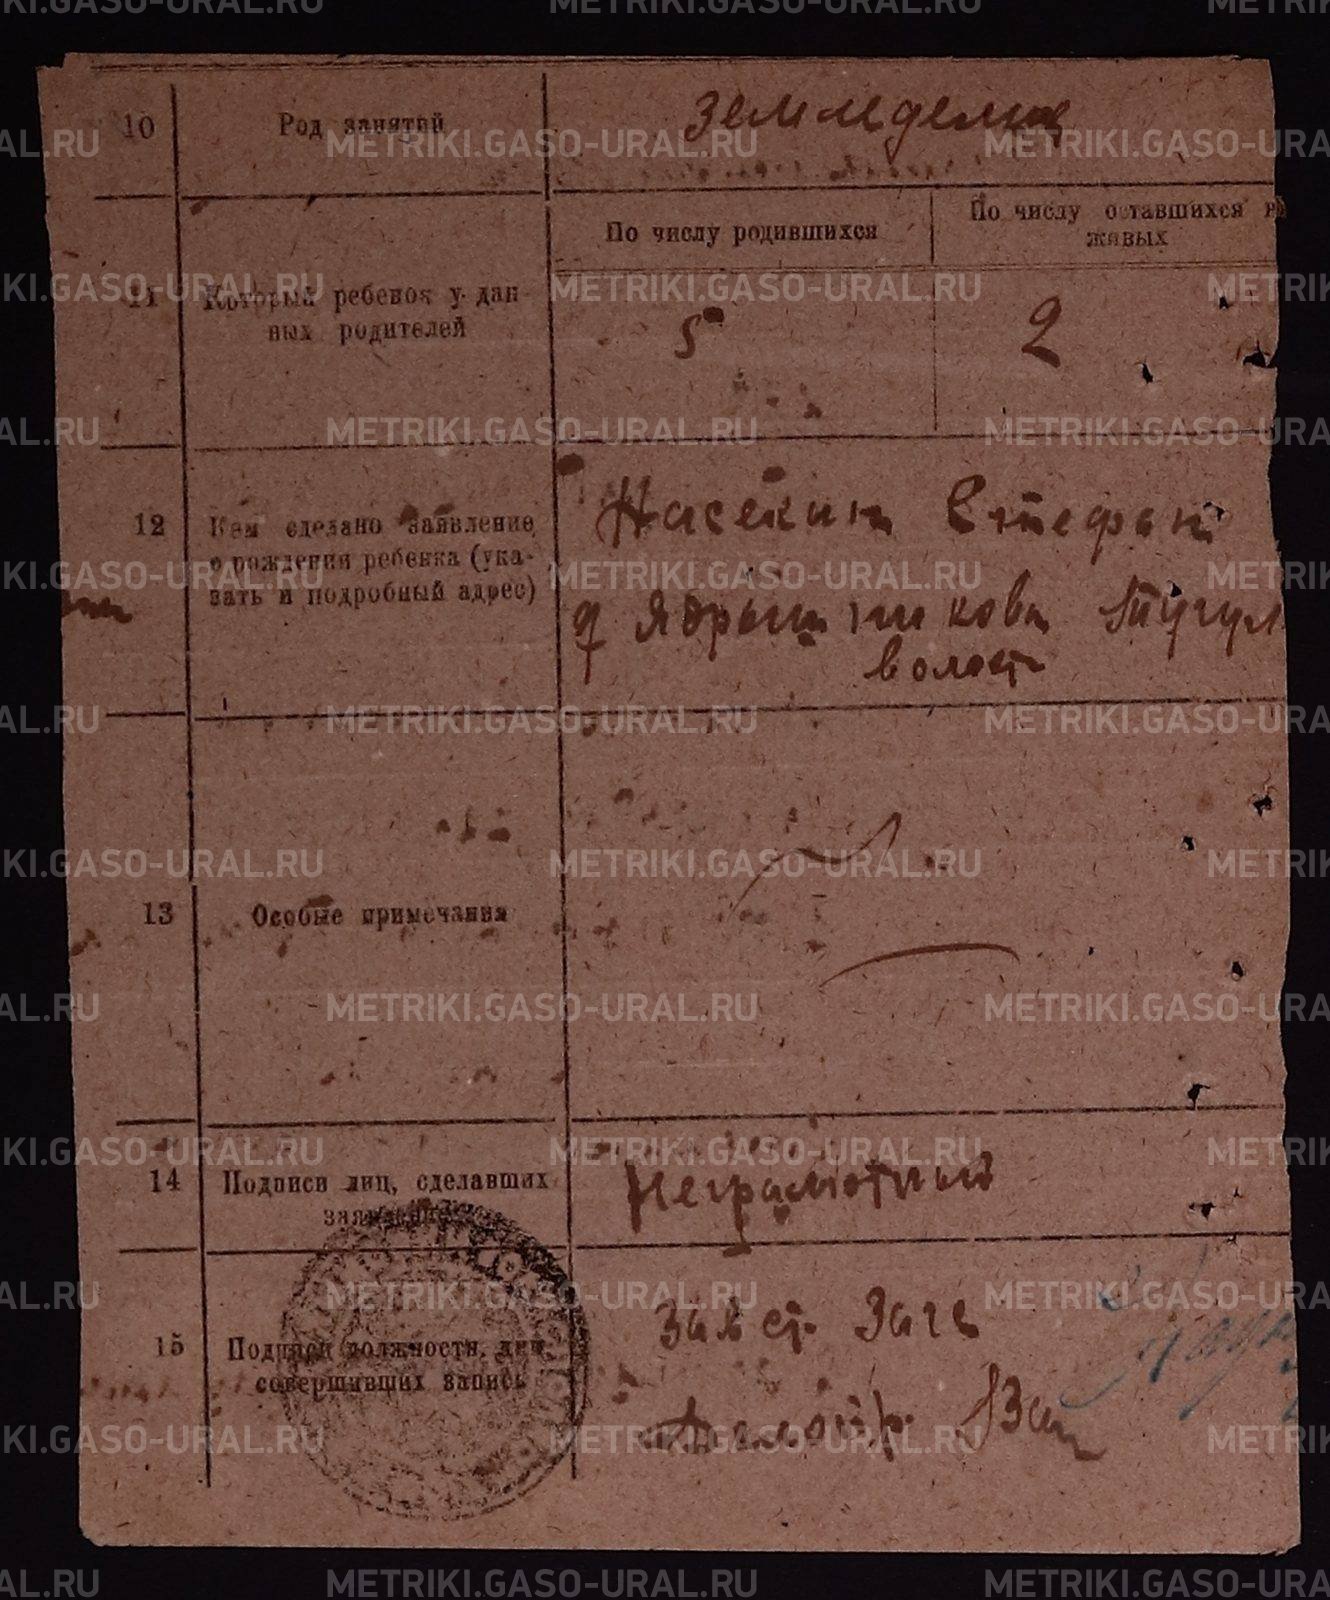 10
Род занятий
Земледелие
11
Который ребенок у дан-
ных родителей
По числу родившихся
По числу оставшихся в
живых
5
2
12
Кем сделано заявление
о рождении ребенка (ука-
зать и подробный адрес)
Насекин Стефан
д Ядрышникова Тугул
волост
13
Особые примечания
14
Подписи лиц, сделавших
заявление
Неграмотный
15
Подписи должностн. лиц,
совершивших запись
METRIKI.GASO-URAL.RU